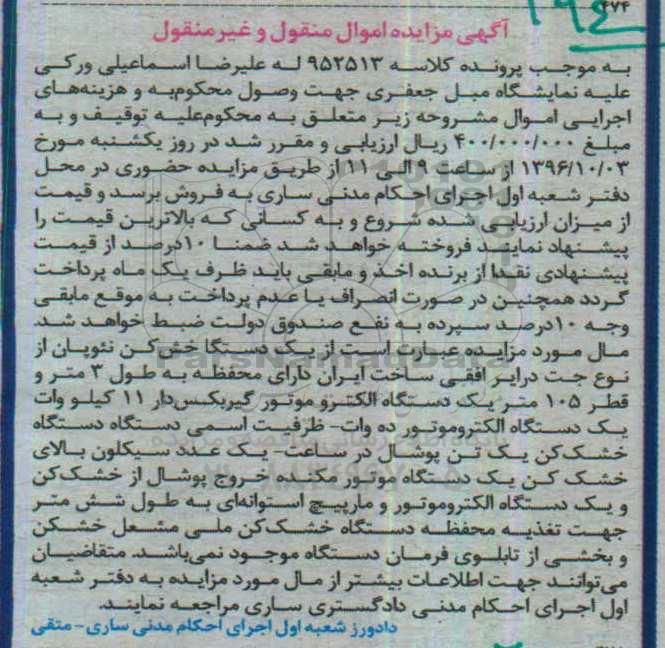 ۴۷۴
۱۹۴
آگهی مزایده اموال منقول و غیرمنقول
به موجب پرونده کلاسه ۹۵۲۵۱۳ له علیرضا اسماعیلی ورکی
علیه نمایشگاه مبل جعفری جهت وصول محکوم‌به و هزینه‌های
اجرایی اموال مشروحه زیر متعلق به محکوم‌علیه توقیف و به
مبلغ ۴۰۰/۰۰۰/۰۰۰ ریال ارزیابی و مقرر شد در روز یکشنبه مورخ
۱۳۹۶/۱۰/۰۳ از ساعت ۹ الی ۱۱ از طریق مزایده حضوری در محل
دفتر شعبه اول اجرای احکام مدنی ساری به فروش برسد و قیمت
از میزان ارزیابی شده شروع و به کسانی که بالاترین قیمت را
پیشنهاد نمایند فروخته خواهد شد ضمنا ۱۰درصد از قیمت
پیشنهادی نقدا از برنده اخذ و مابقی باید ظرف یک ماه پرداخت
گردد همچنین در صورت انصراف یا عدم پرداخت به موقع مابقی
وجه ۱۰درصد سپرده به نفع صندوق دولت ضبط خواهد شد.
مال مورد مزایده عبارت است از یک دستگا خشک‌کن نئوپان از
نوع جت درایر افقی ساخت ایران دارای محفظه به طول ۳ متر و
قطر ۱۰۵ متر یک دستگاه الکترو موتور گیربکس‌دار ۱۱ کیلو وات
یک دستگاه الکتروموتور ده وات- ظرفیت اسمی دستگاه دستگاه
خشک‌کن یک تن پوشال در ساعت- یک عدد سیکلون بالای
خشک کن یک دستگاه موتور مکنده خروج پوشال از خشک‌کن
و یک دستگاه الکتروموتور و مارپیچ استوانه‌ای به طول شش متر
جهت تغذیه محفظه دستگاه خشک‌کن ملی مشعل خشکن
و بخشی از تابلوی فرمان دستگاه موجود نمی‌باشد. متقاضیان
می‌توانند جهت اطلاعات بیشتر از مال مورد مزایده به دفتر شعبه
اول اجرای احکام مدنی دادگستری ساری مراجعه نمایند.
دادورز شعبه اول اجرای احکام مدنی ساری- متقی
ParsNamadData